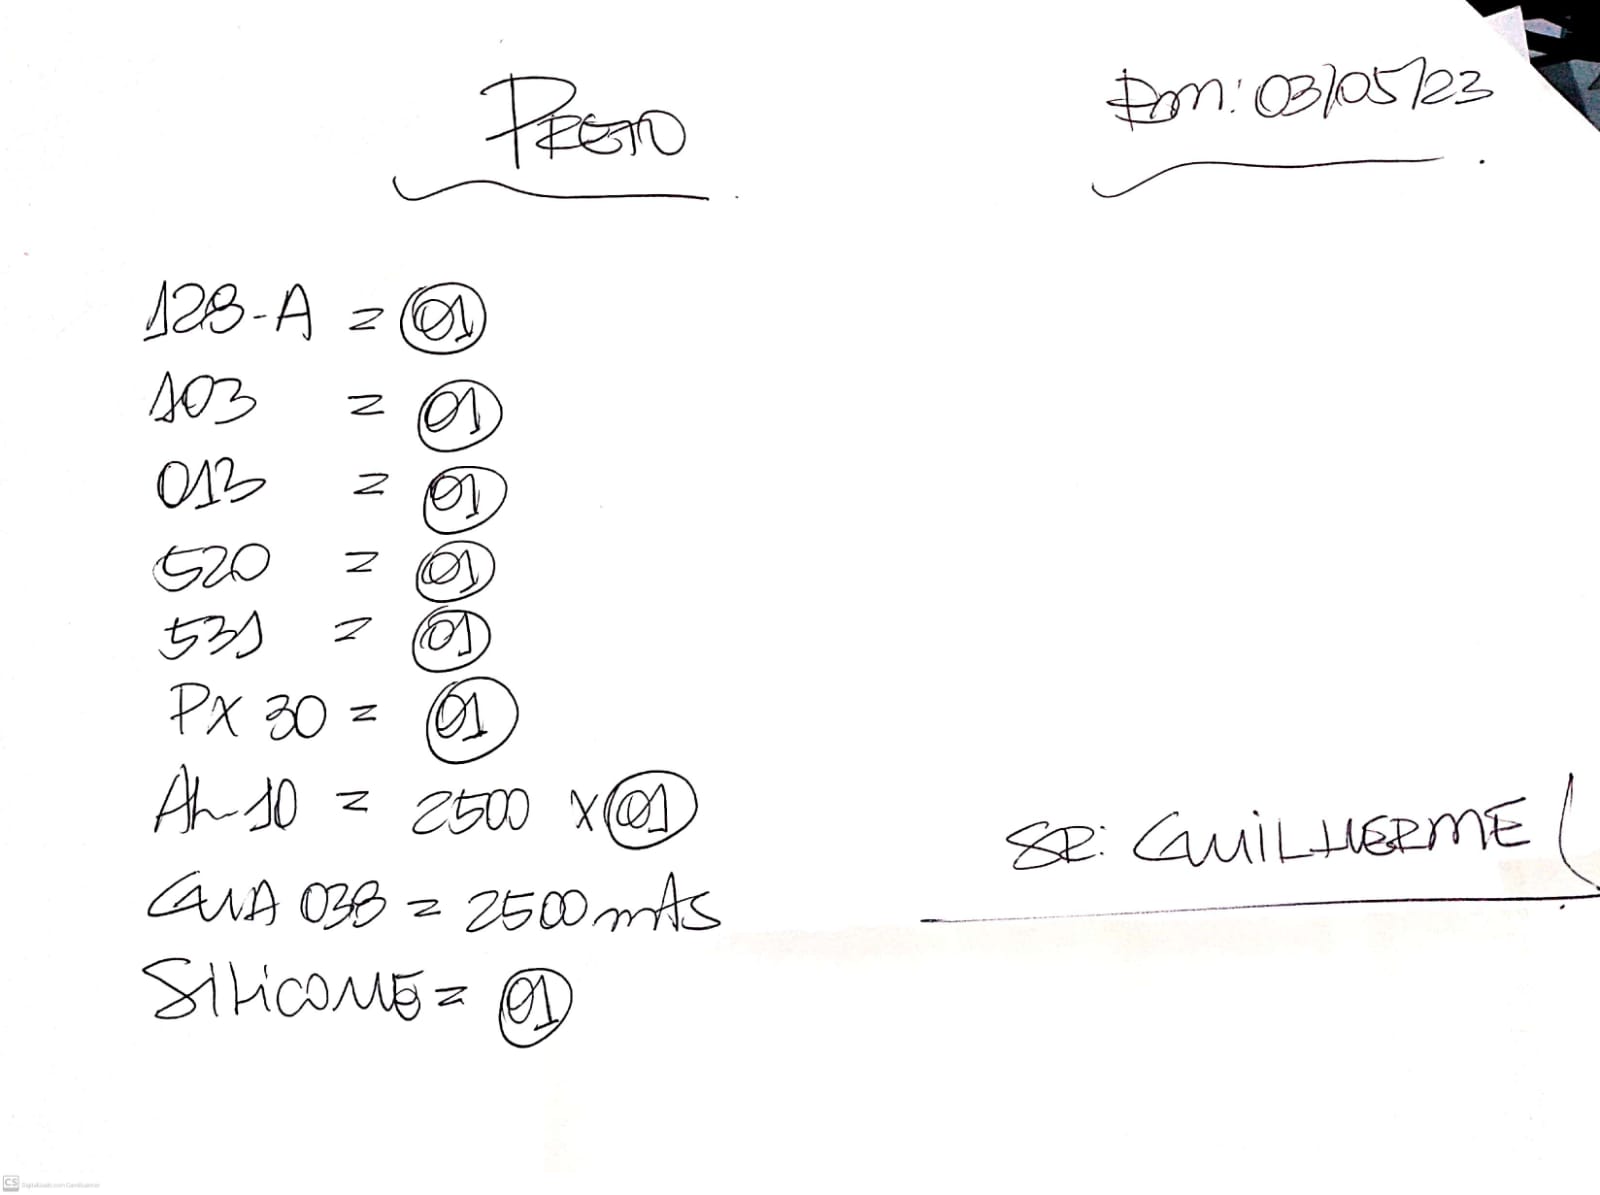 PRETO
Em: 03/05/23
128-A = 01
103 = 01
013 = 01
520 = 01
531 = 01
PX 30 = 01
AL-10 = 2500 X 01
GUIA 038 = 2500 mts
SILICONE = 01
SR: GUILHERME (
CS Digitalizado com CamScanner